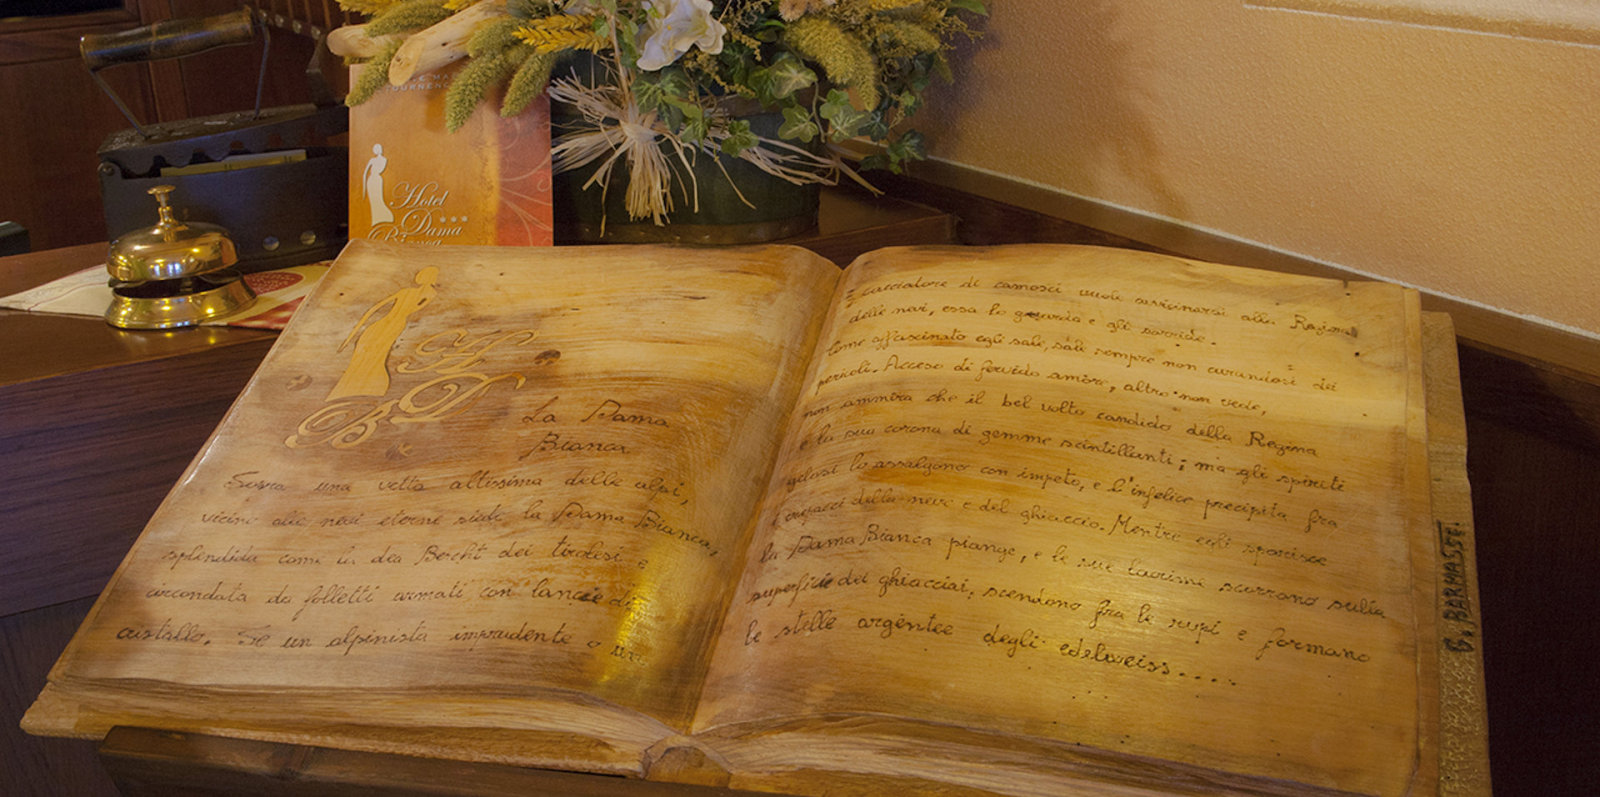 TOURNEN
Hotel
Dama ***
Bianca
H
D
B
La Dama
Bianca
Sovra una vetta altissima delle alpi,
vicino alle nevi eterne siede la Dama Bianca,
splendida come la dea Bercht dei tirolesi e
circondata da folletti armati con lancie di
cristallo. Se un alpinista imprudente o un
cacciatore di camosci vuole avvicinarsi alla Regina
delle nevi, essa lo guarda e gli sorride.
Come affascinato egli sale, sale sempre non curandosi dei
pericoli. Acceso di fervido amore, altro non vede,
non ammira che il bel volto candido della Regina
e la sua corona di gemme scintillanti; ma gli spiriti
gelosi lo assalgono con impeto, e l'infelice precipita fra
i crepacci della neve e del ghiaccio. Mentre egli sparisce
la Dama Bianca piange, e le sue lacrime scorrono sulla
superficie dei ghiacciai, scendono fra le rupi e formano
le stelle argentee degli edelweiss.....
G. BARMASSE.